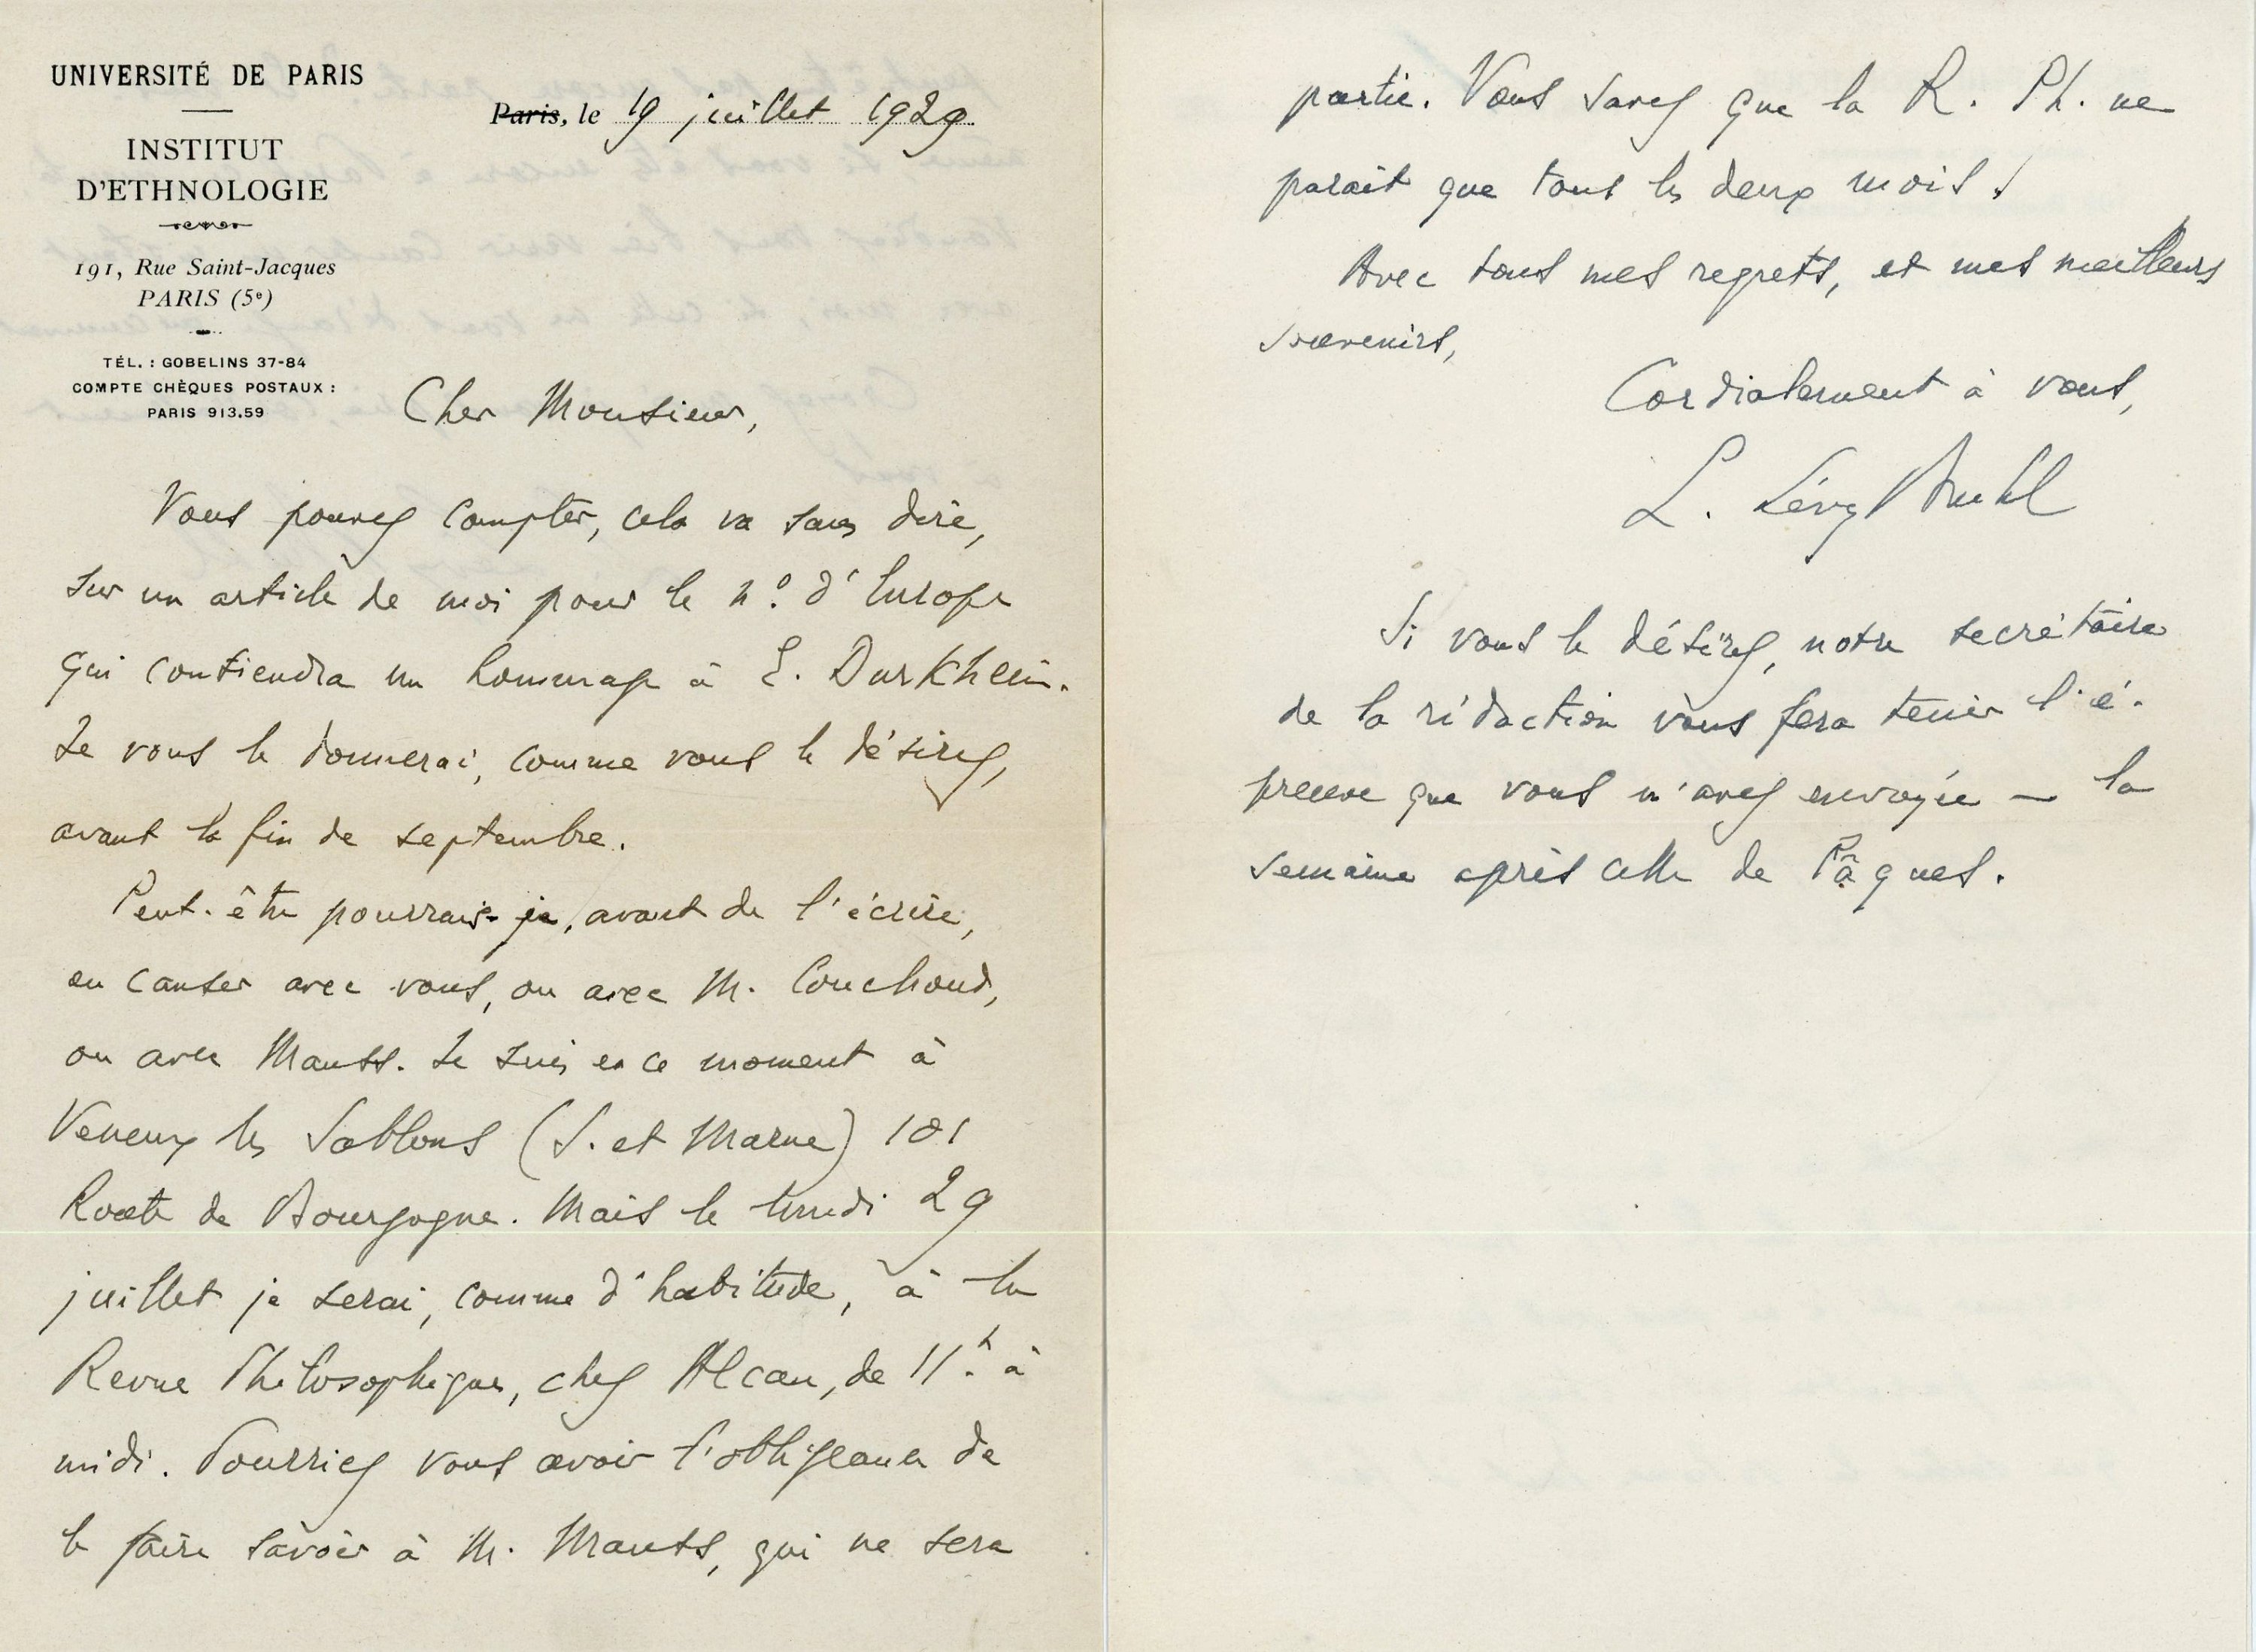 UNIVERSITÉ DE PARIS
INSTITUT
D'ETHNOLOGIE
191, Rue Saint-Jacques
PARIS (5e)
TÉL. : GOBELINS 37-84
COMPTE CHÈQUES POSTAUX :
PARIS 913.59
Paris, le 19 juillet 1929
Cher Monsieur,
Vous pouvez compter, cela va sans dire,
sur un article de moi pour le n.o d'Europe
qui contiendra un hommage à E. Durkheim.
Je vous le donnerai, comme vous le désirez,
avant la fin de septembre.
Peut-être pourrais-je, avant de l'écrire,
en causer avec vous, ou avec M. Couchoud,
ou avec Mauss. Je suis en ce moment à
Veneux les Sablons (S. et Marne) 101
Route de Bourgogne. Mais le lundi 29
juillet je serai, comme d'habitude, à la
Revue Philosophique, chez Alcan, de 11.h à
midi. Pourriez vous avoir l'obligeance de
le faire savoir à M. Mauss, qui ne sera
partie. Vous savez que la R. Ph. ne
parait que tous les deux mois !
Avec tous mes regrets, et mes meilleurs
souvenirs,
Cordialement à vous,
L. Lévy Bruhl
Si vous le désirez, notre secrétaire
de la rédaction vous fera tenir l'é-
preuve que vous m'avez envoyée — la
semaine après celle de Pâques.